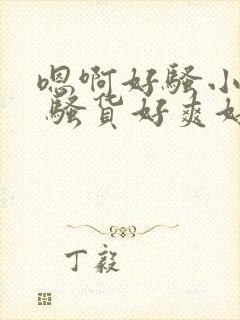 嗯啊好骚小
骚货好爽好
丁毅